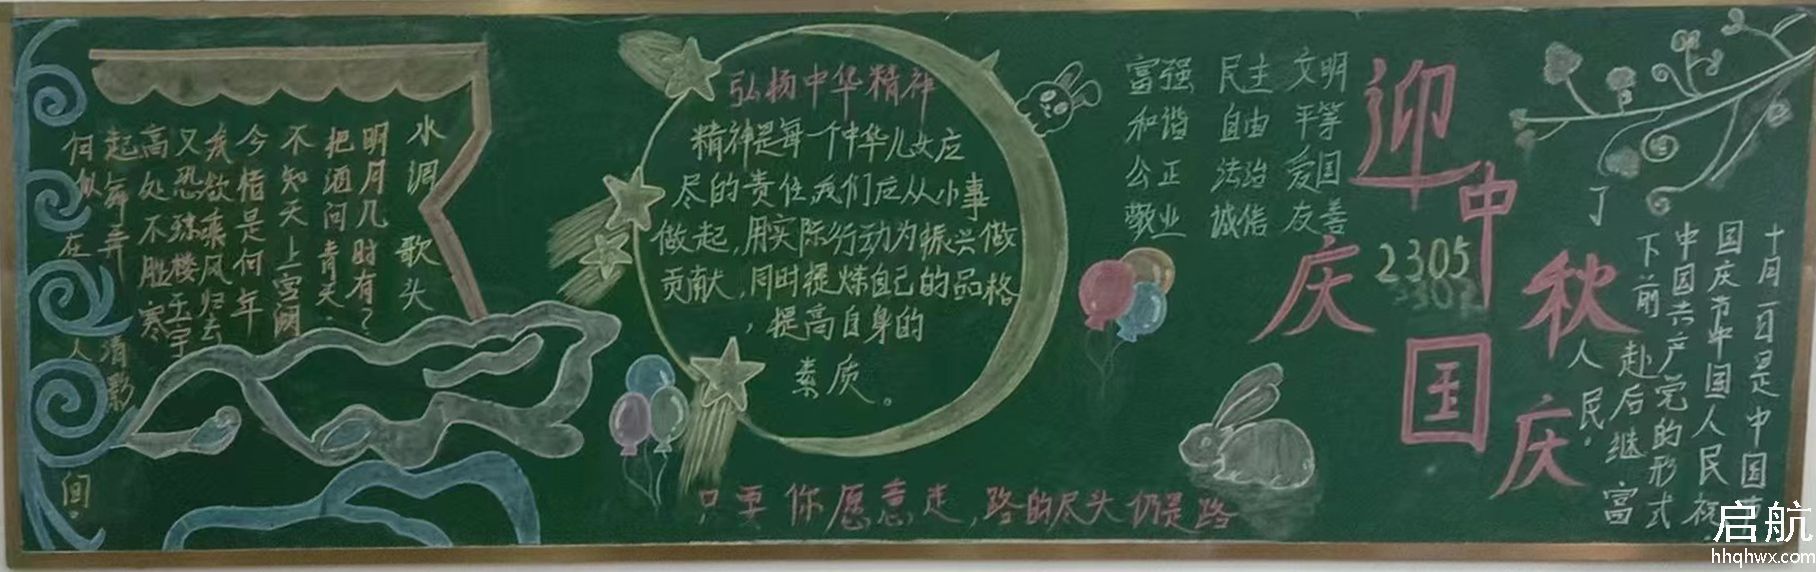 水调歌头
明月几时有?
把酒问青天.
不知天上宫阙
今惜是何年
我欲乘风归去
又恐琼楼玉宇
高处不胜寒
起舞弄清影
何似在人间.
弘扬中华精神
精神是每一个中华儿女应
尽的责任,我们应从小事
做起,用实际行动为振兴做
贡献,同时提炼自己的品格
,提高自身的
素质。
只要你愿意走,路的尽头仍是路
富强 民主 文明
和谐 自由 平等
公正 法治 爱国
敬业 诚信 友善
迎中秋
庆国庆
2305
十月一日是中国
国庆节中国人民祝
中国共产党的形式
下前赴后继富
人民。
启航
hhqhwx.com